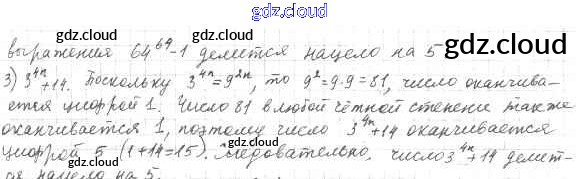 gdz.cool
выражения 64^69-1 делится нацело на 5
gdz.cool gdz.cool
3) 3^4n+14. Поскольку 3^4n=9^2n, то 9^2=9·9=81, число оканчива-
ется цифрой 1. Число 81 в любой чётной степени также
gdz.cool gdz.cool
оканчивается 1, поэтому число 3^4n+14 оканчивается
цифрой 5 (1+14=15). Следовательно, число 3^4n+14 делит-
gdz.cool gdz.cool
ся нацело на 5.